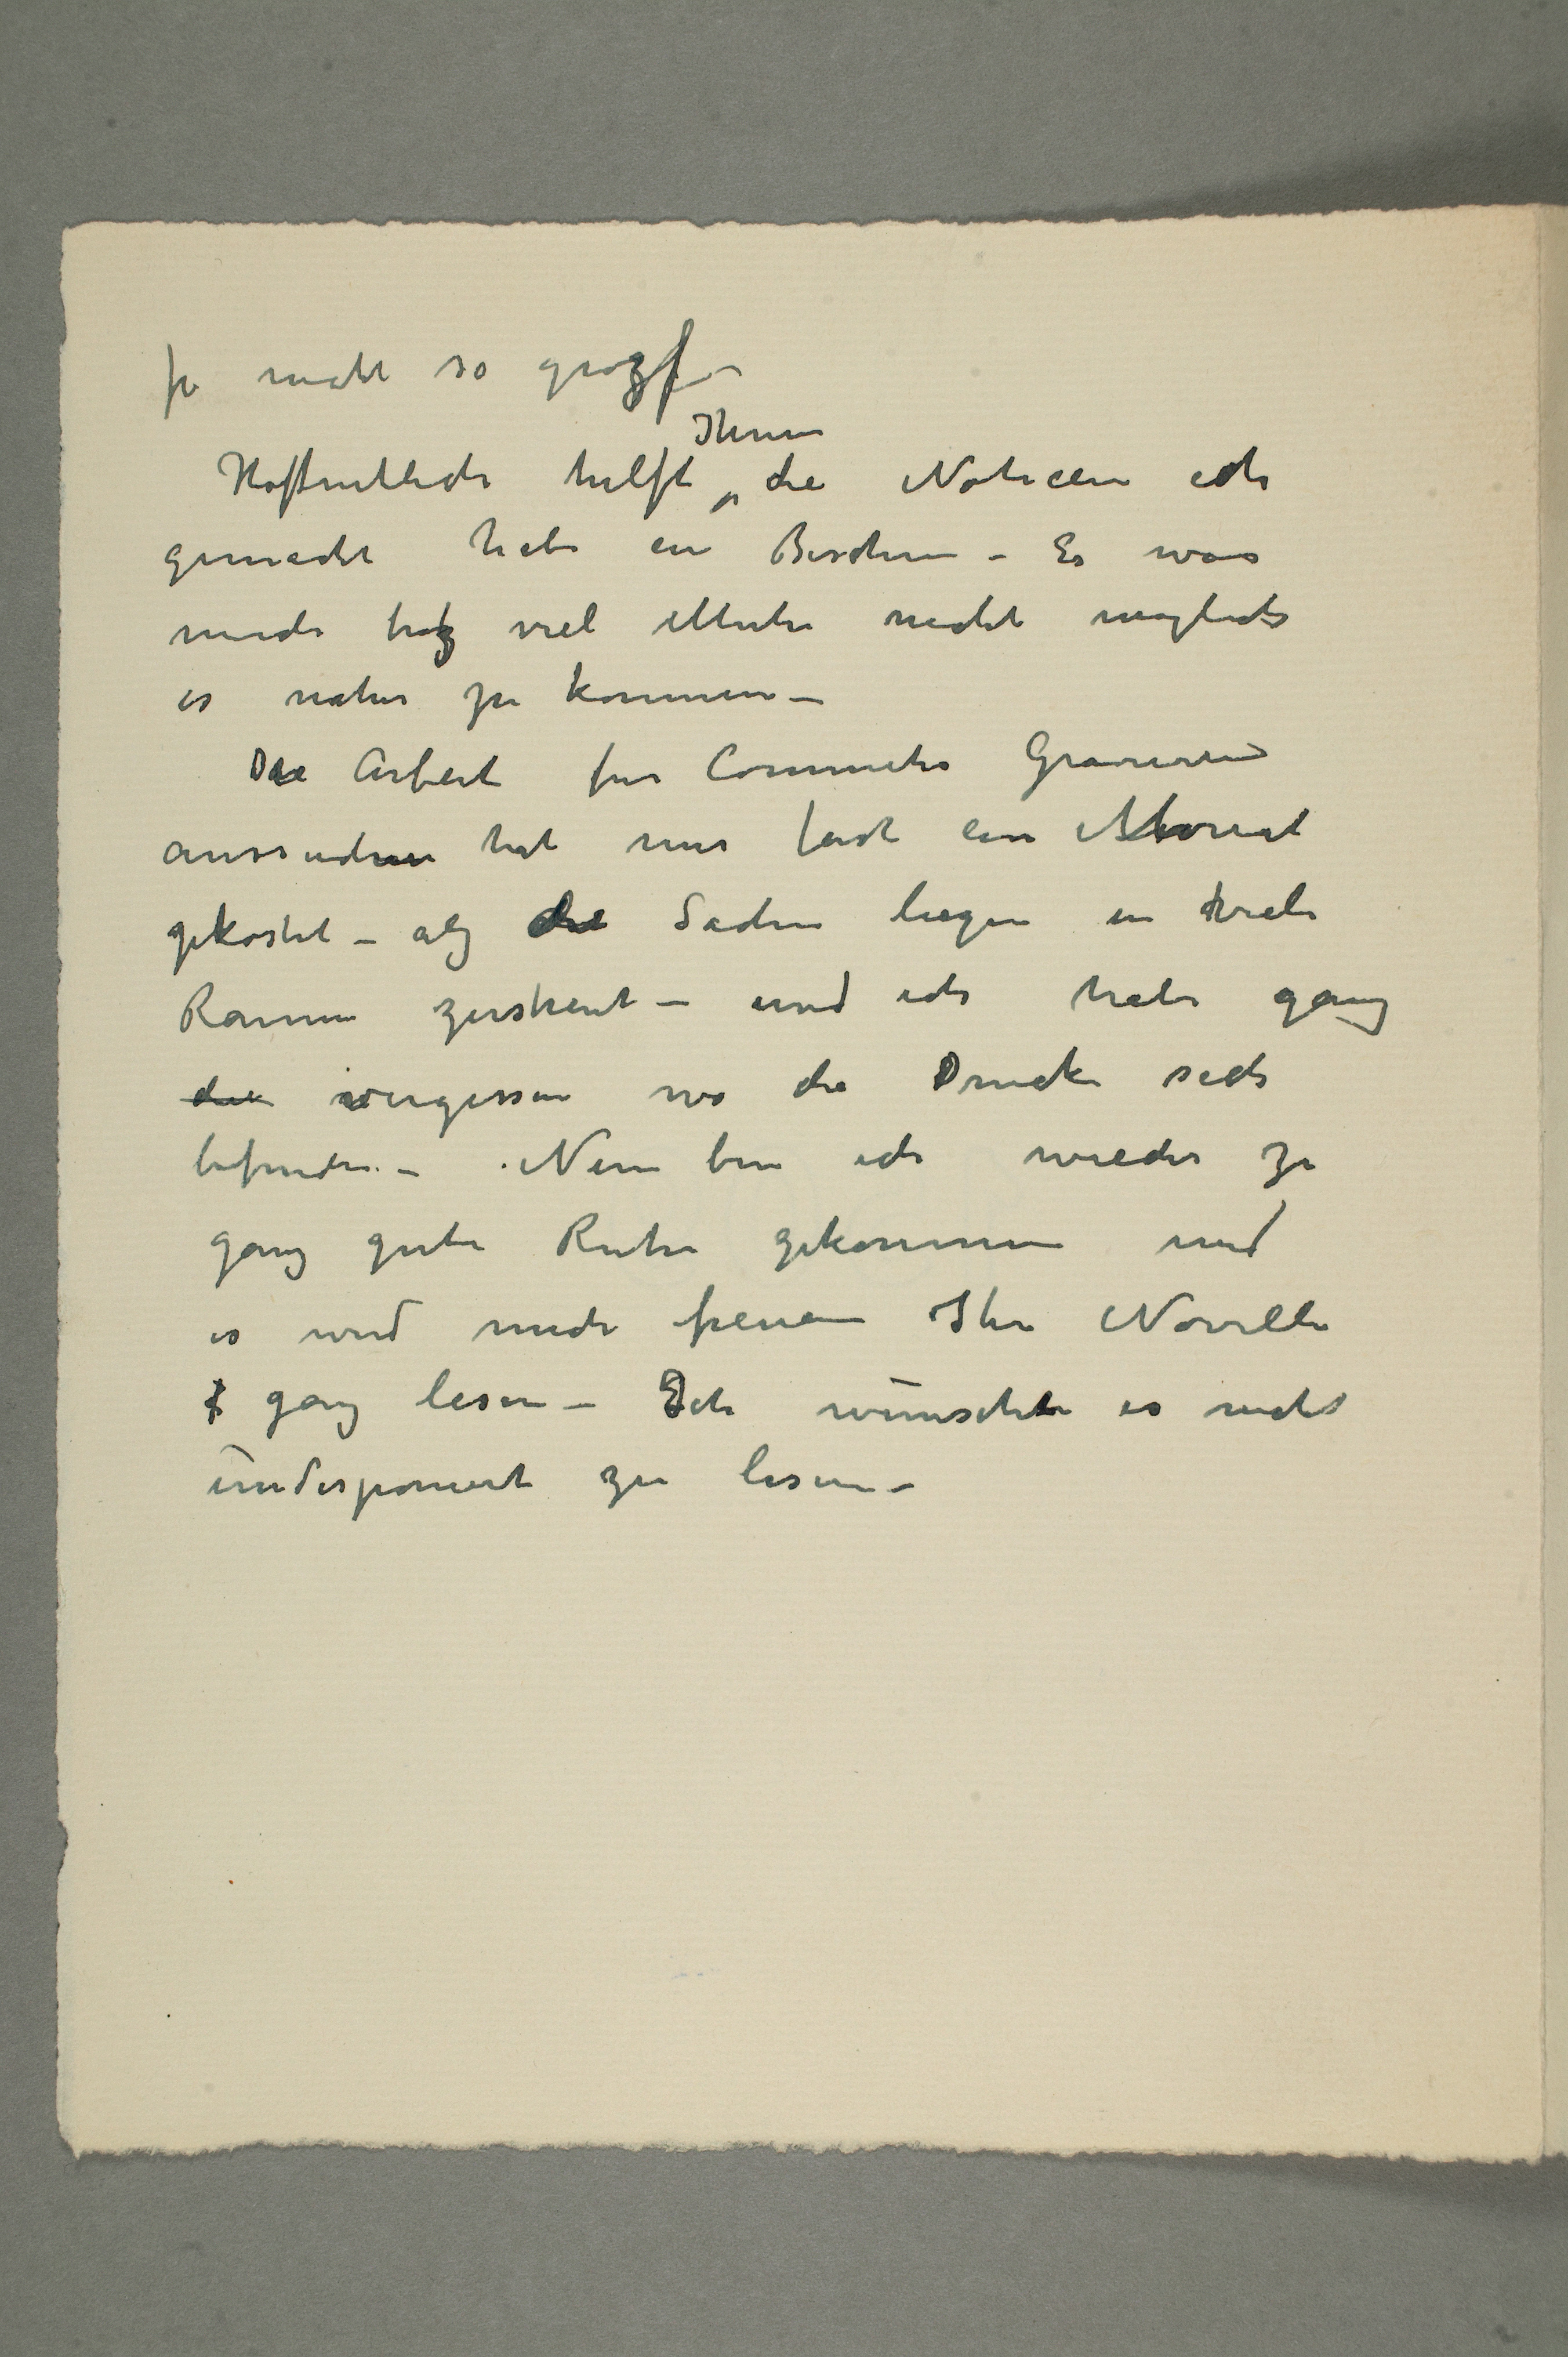 ja nicht so groszf –
Ihnen
Hoffentlich hilft die Noticen ich
gemacht habe ein Bischen – Es war
mich trotz viel Muhe nicht möglich
es naher zu kommen –
Die Arbeit fur Commeter Graveuren
aussuchen hat mir fast ein Monat
gekostet – alz die Sachen liegen in viele
Raumen zerstreut – und ich habe ganz
die vergessen wo die Drucke sich
befinden – Nun bin ich wieder zu
ganz gute Ruhe gekommen und
es wird mich freuen Ihre Novelle
ganz lesen – Ich wünschte es nicht
undisponiert zu lesen –